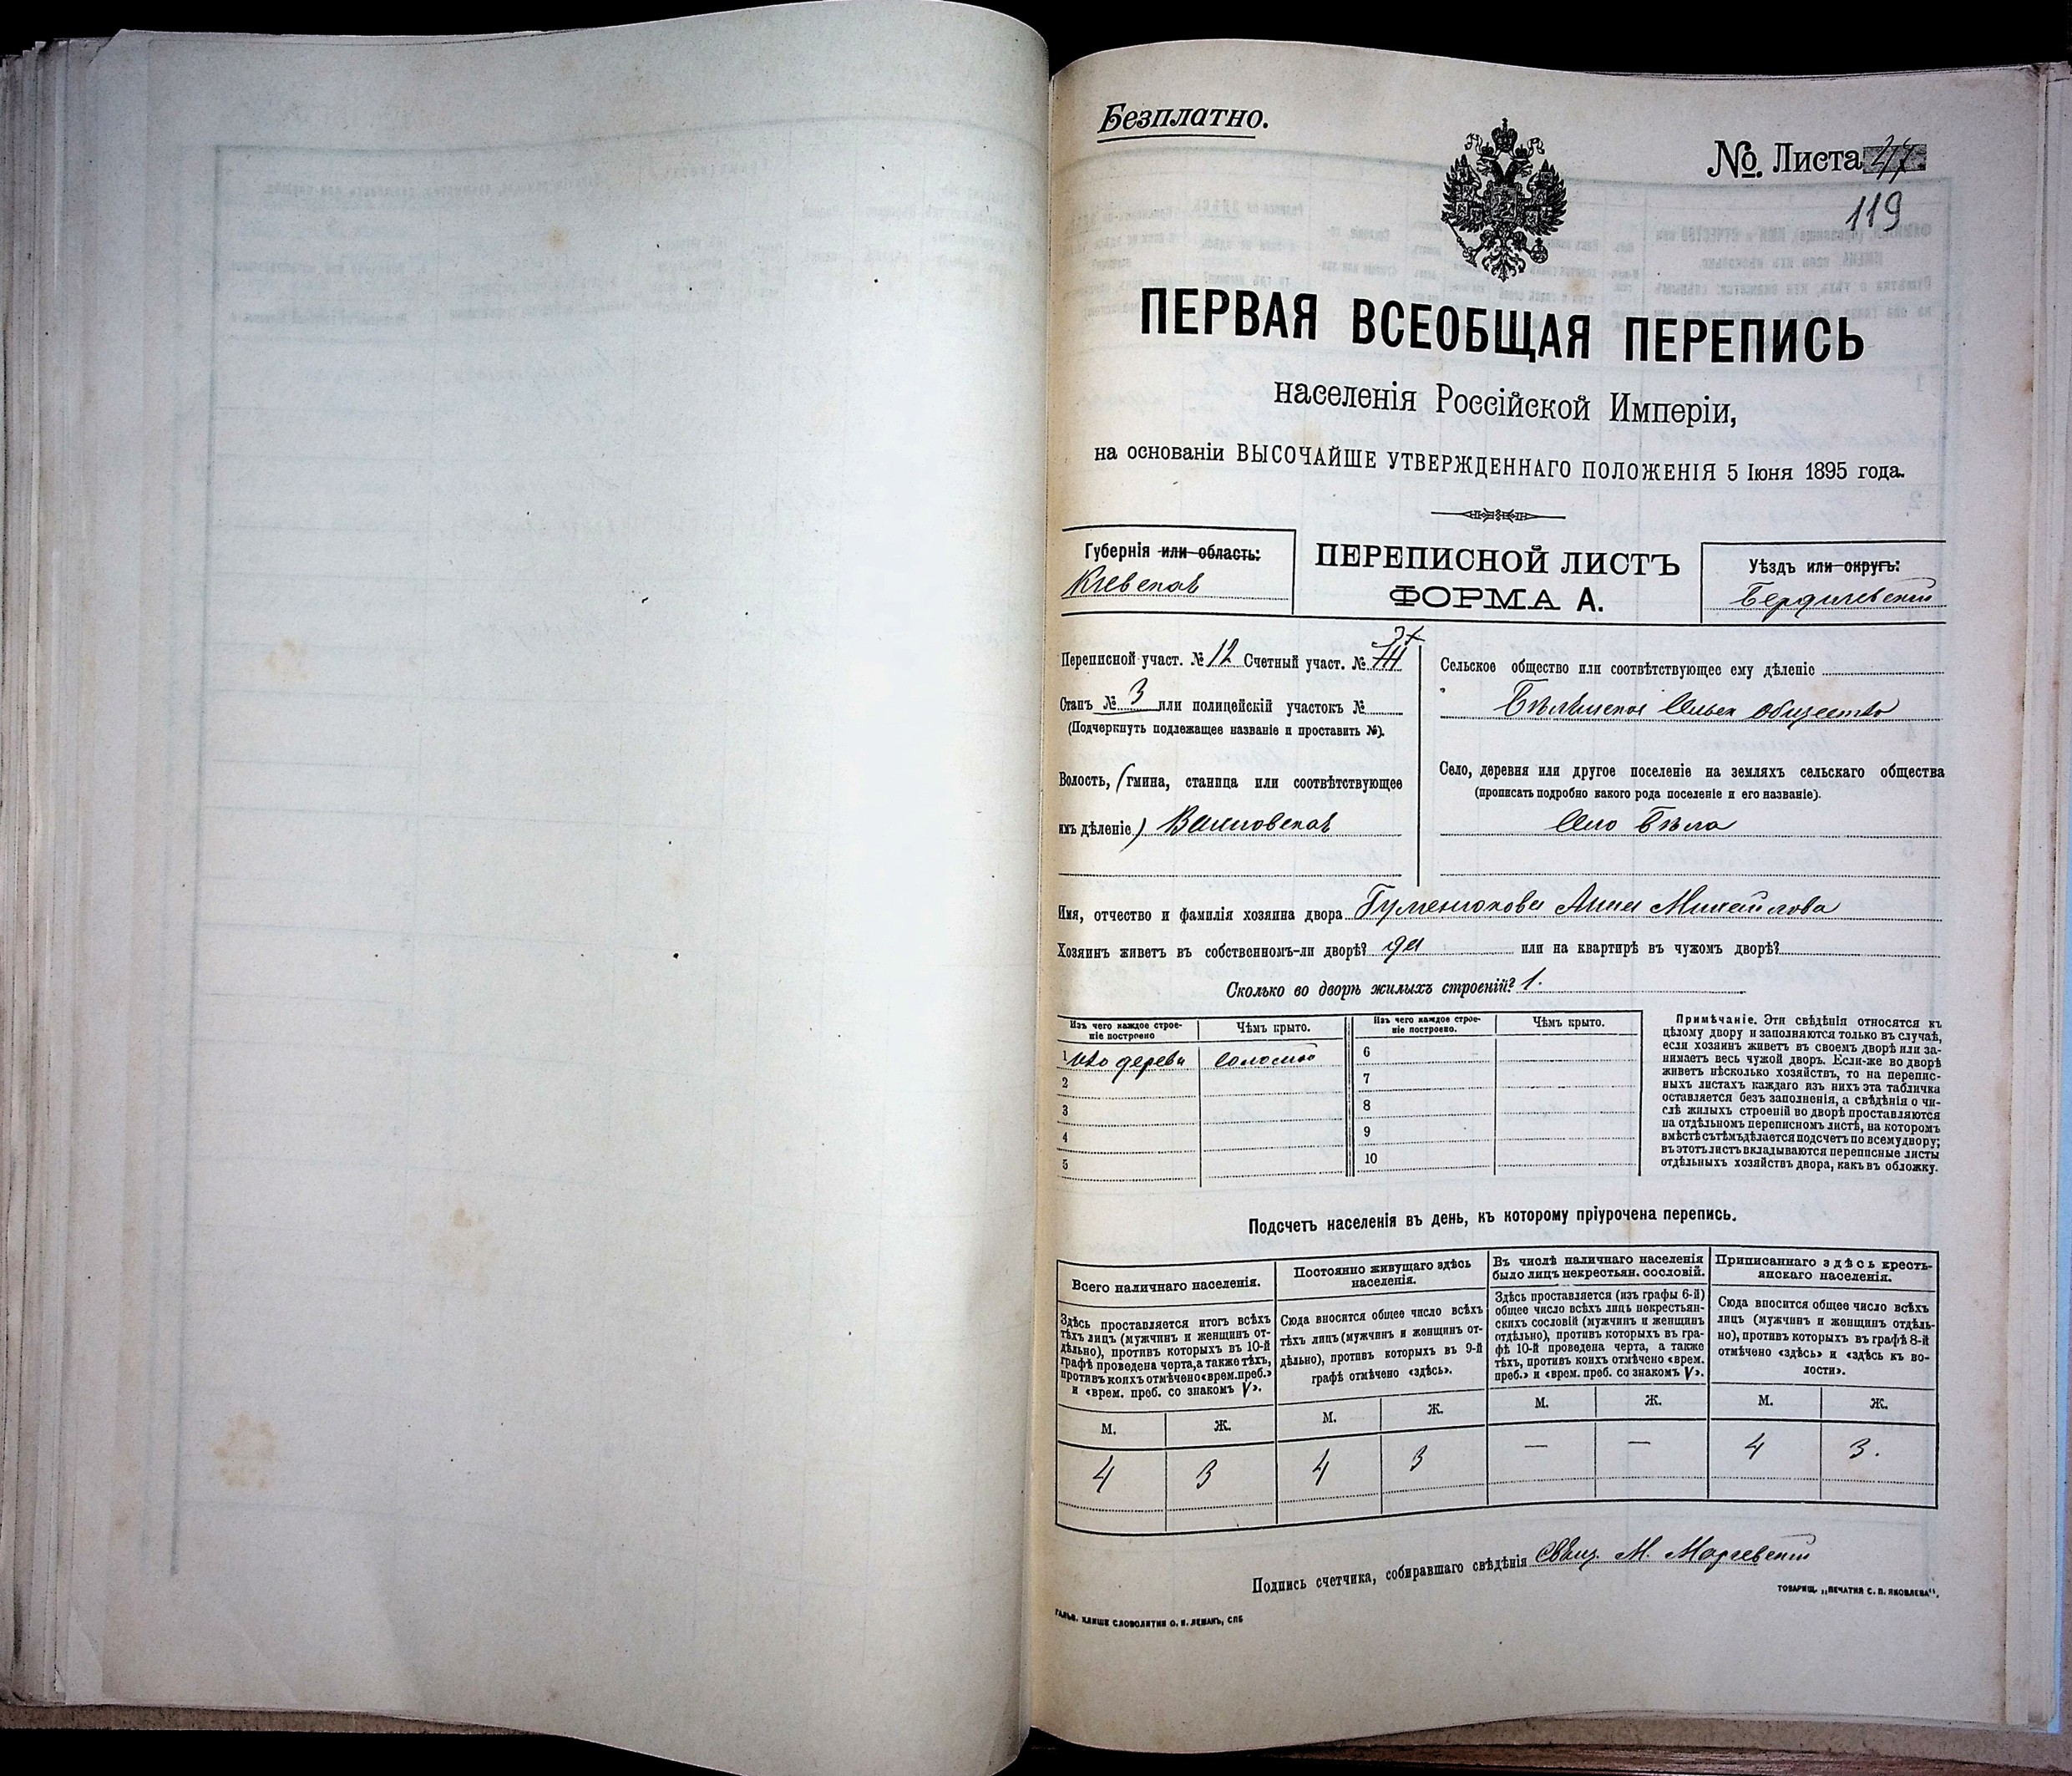 Безплатно.
№ Листа 47.
119
ПЕРВАЯ ВСЕОБЩАЯ ПЕРЕПИСЬ
населенія Россійской Имперіи,
на основаніи ВЫСОЧАЙШЕ УТВЕРЖДЕННАГО ПОЛОЖЕНІЯ 5 Іюня 1895 года.
Губернія или область:
Кіевская
ПЕРЕПИСНОЙ ЛИСТЪ
ФОРМА А.
Уѣздъ или округъ:
Бердичевскій
Переписной участ. № 12 Счетный участ. №
Станъ № 3 или полицейскій участокъ №
(Подчеркнуть подлежащее названіе и проставить №).
Волость, (гмина, станица или соотвѣтствующее
имъ дѣленіе)
Сельское общество или соотвѣтствующее ему дѣленіе
Сельск общество
Село, деревня или другое поселеніе на земляхъ сельскаго общества
(прописать подробно какого рода поселеніе и его названіе).
Село Бѣла
Имя, отчество и фамилія хозяина двора Гуменюкова Анна Михайлова
Хозяинъ живетъ въ собственномъ-ли дворѣ? да или на квартирѣ въ чужомъ дворѣ?
Сколько во дворѣ жилыхъ строеній? 1.
Изъ чего каждое строе-
ніе построено
Чѣмъ крыто.
Изъ чего каждое строе-
ніе построено.
Чѣмъ крыто.
1 изъ дерева соломою 6
2 7
3 8
4 9
5 10
Примѣчаніе. Эти свѣдѣнія относятся къ
цѣлому двору и заполняются только въ случаѣ,
если хозяинъ живетъ въ своемъ дворѣ или за-
нимаетъ весь чужой дворъ. Если-же во дворѣ
живетъ нѣсколько хозяйствъ, то на перепис-
ныхъ листахъ каждаго изъ нихъ эта табличка
оставляется безъ заполненія, а свѣдѣнія о чи-
слѣ жилыхъ строеній во дворѣ проставляются
на отдѣльномъ переписномъ листѣ, на которомъ
вмѣстѣ съ тѣмъ дѣлается подсчетъ по всему двору;
въ этотъ листъ вкладываются переписные листы
отдѣльныхъ хозяйствъ двора, какъ въ обложку.
Подсчетъ населенія въ день, къ которому пріурочена перепись.
Всего наличнаго населенія.
Здѣсь проставляется итогъ всѣхъ
тѣхъ лицъ (мужчинъ и женщинъ от-
дѣльно), противъ которыхъ въ 10-й
графѣ проведена черта, а также тѣхъ,
противъ коихъ отмѣчено «врем. преб.»
и «врем. преб. со знакомъ V».
Постоянно живущаго здѣсь
населенія.
Сюда вносится общее число всѣхъ
тѣхъ лицъ (мужчинъ и женщинъ от-
дѣльно), противъ которыхъ въ 9-й
графѣ отмѣчено «здѣсь».
Въ числѣ наличнаго населенія
было лицъ некрестьян. сословій.
Здѣсь проставляется (изъ графы 6-й)
общее число всѣхъ лицъ некрестьян-
скихъ сословій (мужчинъ и женщинъ
отдѣльно), противъ которыхъ въ гра-
фѣ 10-й проведена черта, а также
тѣхъ, противъ коихъ отмѣчено «врем.
преб.» и «врем. преб. со знакомъ V».
Приписаннаго здѣсь кресть-
янскаго населенія.
Сюда вносится общее число всѣхъ
лицъ (мужчинъ и женщинъ отдѣль-
но), противъ которыхъ въ графѣ 8-й
отмѣчено «здѣсь» и «здѣсь къ во-
лости».
М. Ж. М. Ж. М. Ж. М. Ж.
4 3 4 3 — — 4 3.
Подпись счетчика, собиравшаго свѣдѣнія Свящ. М.
ТОВАРИЩ. „ПЕЧАТНЯ С. П. ЯКОВЛЕВА“.
ГАЛЬВ. КЛИШЕ СЛОВОЛИТНИ О. И. ЛЕМАНЪ, СПБ